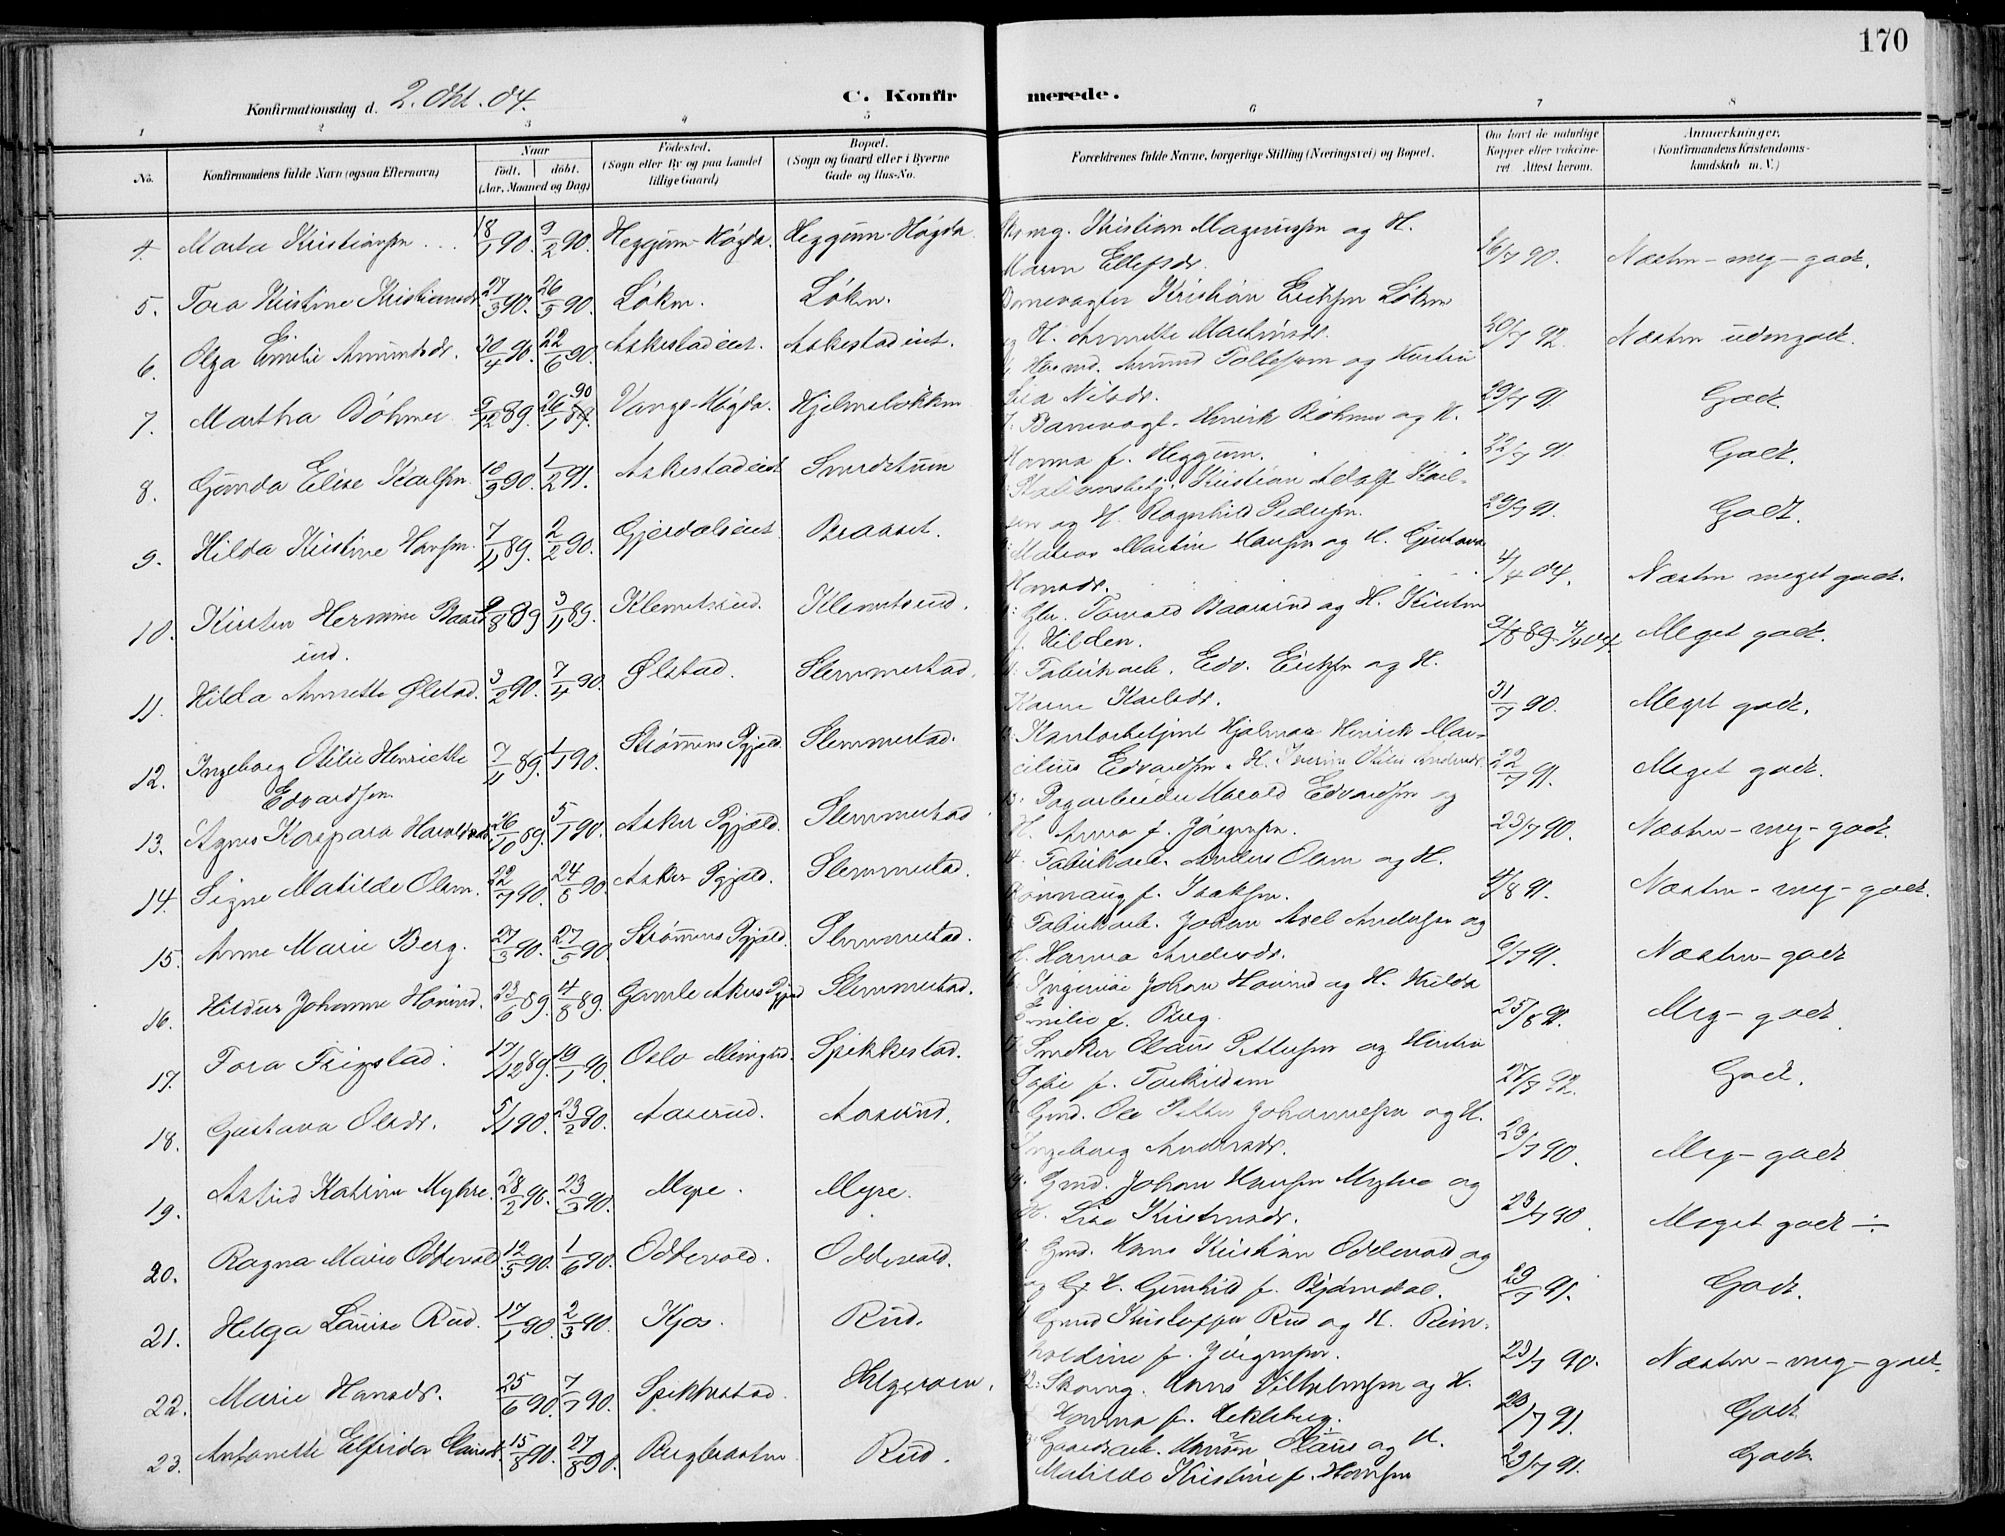 170
Konfirmationsdag d. 2. Okt. 04.
C. Konfirmerede.
1 2 3 4 5 6 7 8
No.
Konfirmandens fulde Navn (ogsaa Efternavn)
Naar
født. døbt.
(Aar, Maaned og Dag)
Fødested.
(Sogn eller By og paa Landet
tillige Gaard)
Bopæl.
(Sogn og Gaard eller i Byerne
Gade og Hus-No.
Forældrenes fulde Navne, borgerlige Stilling (Næringsvei) og Bopæl.
Om havt de naturlige
Kopper eller vakcine-
ret Attest herom.
Anmærkninger.
(Konfirmandens Kristendoms-
kundskab m. V.)
4. Marta Kristiansen 18/1 90. 9/2 90. Heggum-Høgda. Heggum-Høgda Kristian Magnussen og H. 16/7 90. Næsten-meg-godt.
Maren Ellefsdr.
5. Tora Kristine Kristiansdr. 27/3 90. 26/5 90. Løken. Løken. Banevagter Kristian Eriksen Løken 20/7 92. Næsten udmgodt.
og H. Annette Martinsdr.
6. Olga Emilie Amundsdr. 30/4 90. 22/6 90. Askestadeiet. Askestadeiet. Amund Tollefsen og Hustru 29/7 91. Godt.
Lea Nilsdr.
7. Martha Bøhmer 9/12 89. 26/1 90 89. Vangs-Høgda. Hjelmeløkken 7. Banevogt. Henrik Bøhmer og H. 22/7 91 Godt.
Hanna f. Heggum.
8. Gunda Elise Karlsen 10/9 90. 1/2 91. Askestadeiet Sverdstuen Kristian Adolf Karl- 29/7 91. Godt.
sen og H. Ragnhild Pedersen.
9. Hilda Kristine Hansen 7/11 89. 2/2 90. Gjerdaleiet Braaset. Matros Martin Hansen og H. Gustava 4/4 04. Næsten meget godt.
Hansdr.
10. Kirsten Hermine Baarsrud. 9/8 89 3/11 89. Klemetsrud. Klemetsrud. Torvald Baarsrud og H. Kirsten 9/8 89-4/4 04 Meget godt.
f. Hilden.
11. Hilda Annette Ølstad. 3/2 90. 7/4 90. Ølstad. Slemmestad. Fabrikarb. Edv. Eriksen og H. 31/7 90. Meget godt.
Karen Karlsdr.
12. Ingeborg Otilie Henriette Edvardsen 7/11 89. 1/1 90. Strømmens Pgjæld. Slemmestad. Kontorbetjent Hjalmar Henrik Mar- 22/7 91. Meget godt.
celius Edvardsen. H. Severine Otilie Andersdr.
13. Agnes Kaspara Haraldsdr. 26/10 89. 5/1 90. Asker Pgjæld. Slemmestad 13. Dagarbeider Harald Edvardsen og 23/7 90. Næsten-meg-godt.
H. Anna f. Jørgensen.
14. Signe Matilde Olsen. 22/7 90. 24/8 90. Asker Pgjæld. Slemmestad. Fabrikarb. Anders Olsen og H. 4/8 91. Næsten-meg-godt.
Rønnaug f. Isaksen.
15. Anne Marie Berg. 27/3 90. 27/5 90. Strømmens Pgjæld. Slemmestad. Fabrikarb. Johan Axel Andersen og 6/7 91. Næsten-godt
H. Hanna Andersdr.
16. Hildur Johanne Hovind. 23/6 89. 4/8 89. Gamle Akers Pgjæld Slemmestad. Ingeniør Johan Hovind og H. Hulda 25/8 91. Meg-godt
Emilie f. Berg.
17. Tora Trigstad. 17/12 89. 19/1 90. Oslo Menighed. Spikkestad. Snekker Olaus Pettersen og Hustru 27/7 92. Godt.
Sofie f. Torkildsen
18. Gustava Olsdr. 5/1 90. 23/2 90. Aaserud. Aaserud. Gmd. Ole Petter Johannesen og H. 23/7 90. Meg-godt
Ingeborg Andersdr.
19. Astrid Katrine Myhre. 28/2 90. 23/3 90. Myre. Myre. Gmd. Johan Hansen Myhre og 23/7 90. Meget godt ÷
H. Lise Kristensdr.
20. Ragna Marie Oddevold. 12/5 90. 1/6 90. Oddevold. Oddevold. Gmd. Hans Kristian Oddevold og 29/7 91. Godt.
H. Gunhild f. Bjørndal.
21. Helga Louise Rud. 17/1 90. 2/3 90. Kjos. Rud. Gmd Kristoffer Rud og H. Rein- 23/7 90. Næsten-meg-godt.
holdine f. Jørgensen.
22. Marie Hansdr. 25/6 90. 7/7 90. Spikkestad. Helgeroen. 22. Hans Vilhelmsen og H. 20/7 91. Godt
Hanna f. Hekleberg.
23. Antonette Elfrida Clausdr. 15/8 90. 27/8 90. Bergbraaten Rud. Gaardsarb. Claus og H. 23/7 91. Godt.
Matilde Kristine f. Hansen